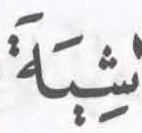 شِيَةَ